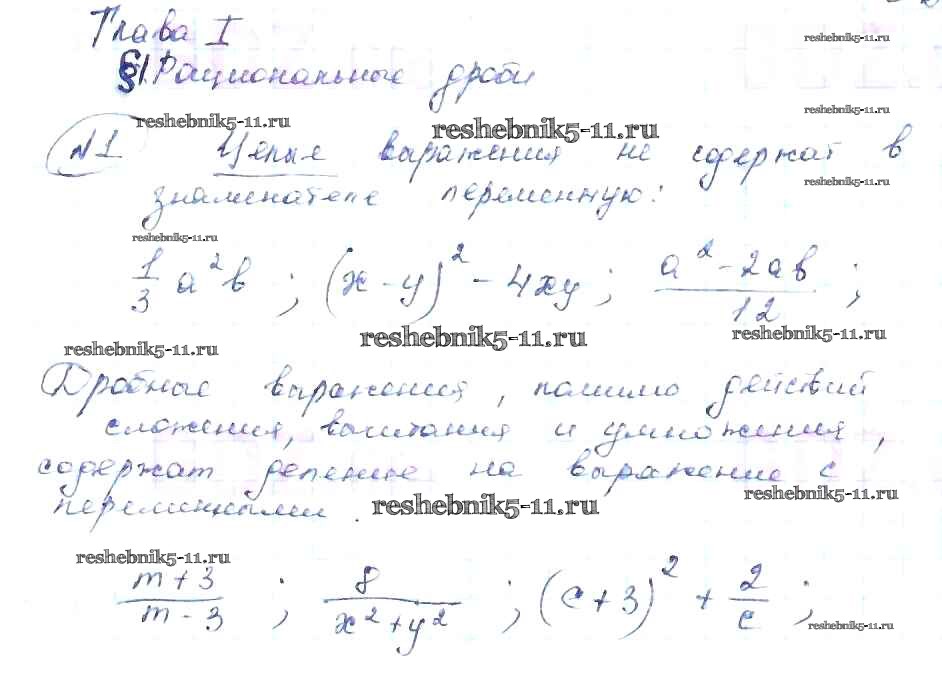 Глава I
§1. Рациональные дроби
reshebnik5-11.ru
reshebnik5-11.ru
reshebnik5-11.ru reshebnik5-11.ru
№1 Целые выражения не содержат в
reshebnik5-11.ru
знаменателе переменную:
reshebnik5-11.ru
1/3 a²b ; (x - y)² - 4xy ; (a² - 2ab)/12 ;
reshebnik5-11.ru reshebnik5-11.ru reshebnik5-11.ru
Дробные выражения, помимо действий
сложения, вычитания и умножения,
содержат деление на выражение с
переменными. reshebnik5-11.ru reshebnik5-11.ru
reshebnik5-11.ru
(m + 3)/(m - 3) ; 8/(x² + y²) ; (c + 3)² + 2/c ;
reshebnik5-11.ru